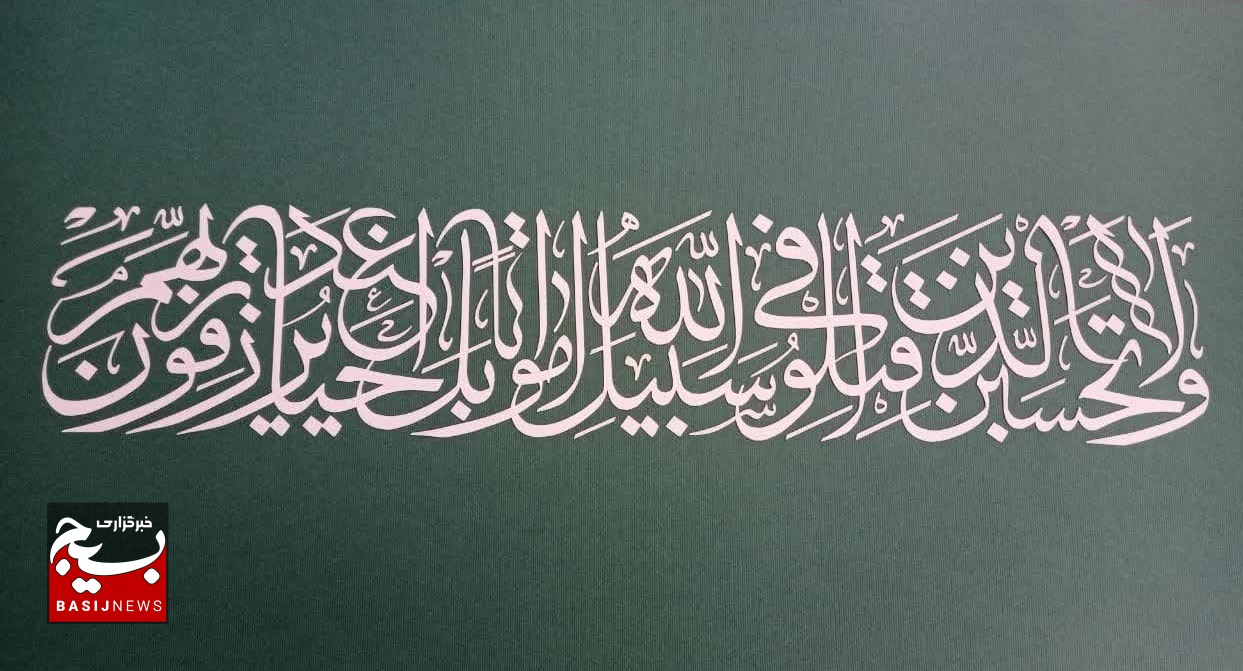 ولا تحسبن الذین قتلوا فی سبیل الله امواتا بل احیاء عند ربهم یرزقون
خبرگزاری
بسیج
BASIJNEWS